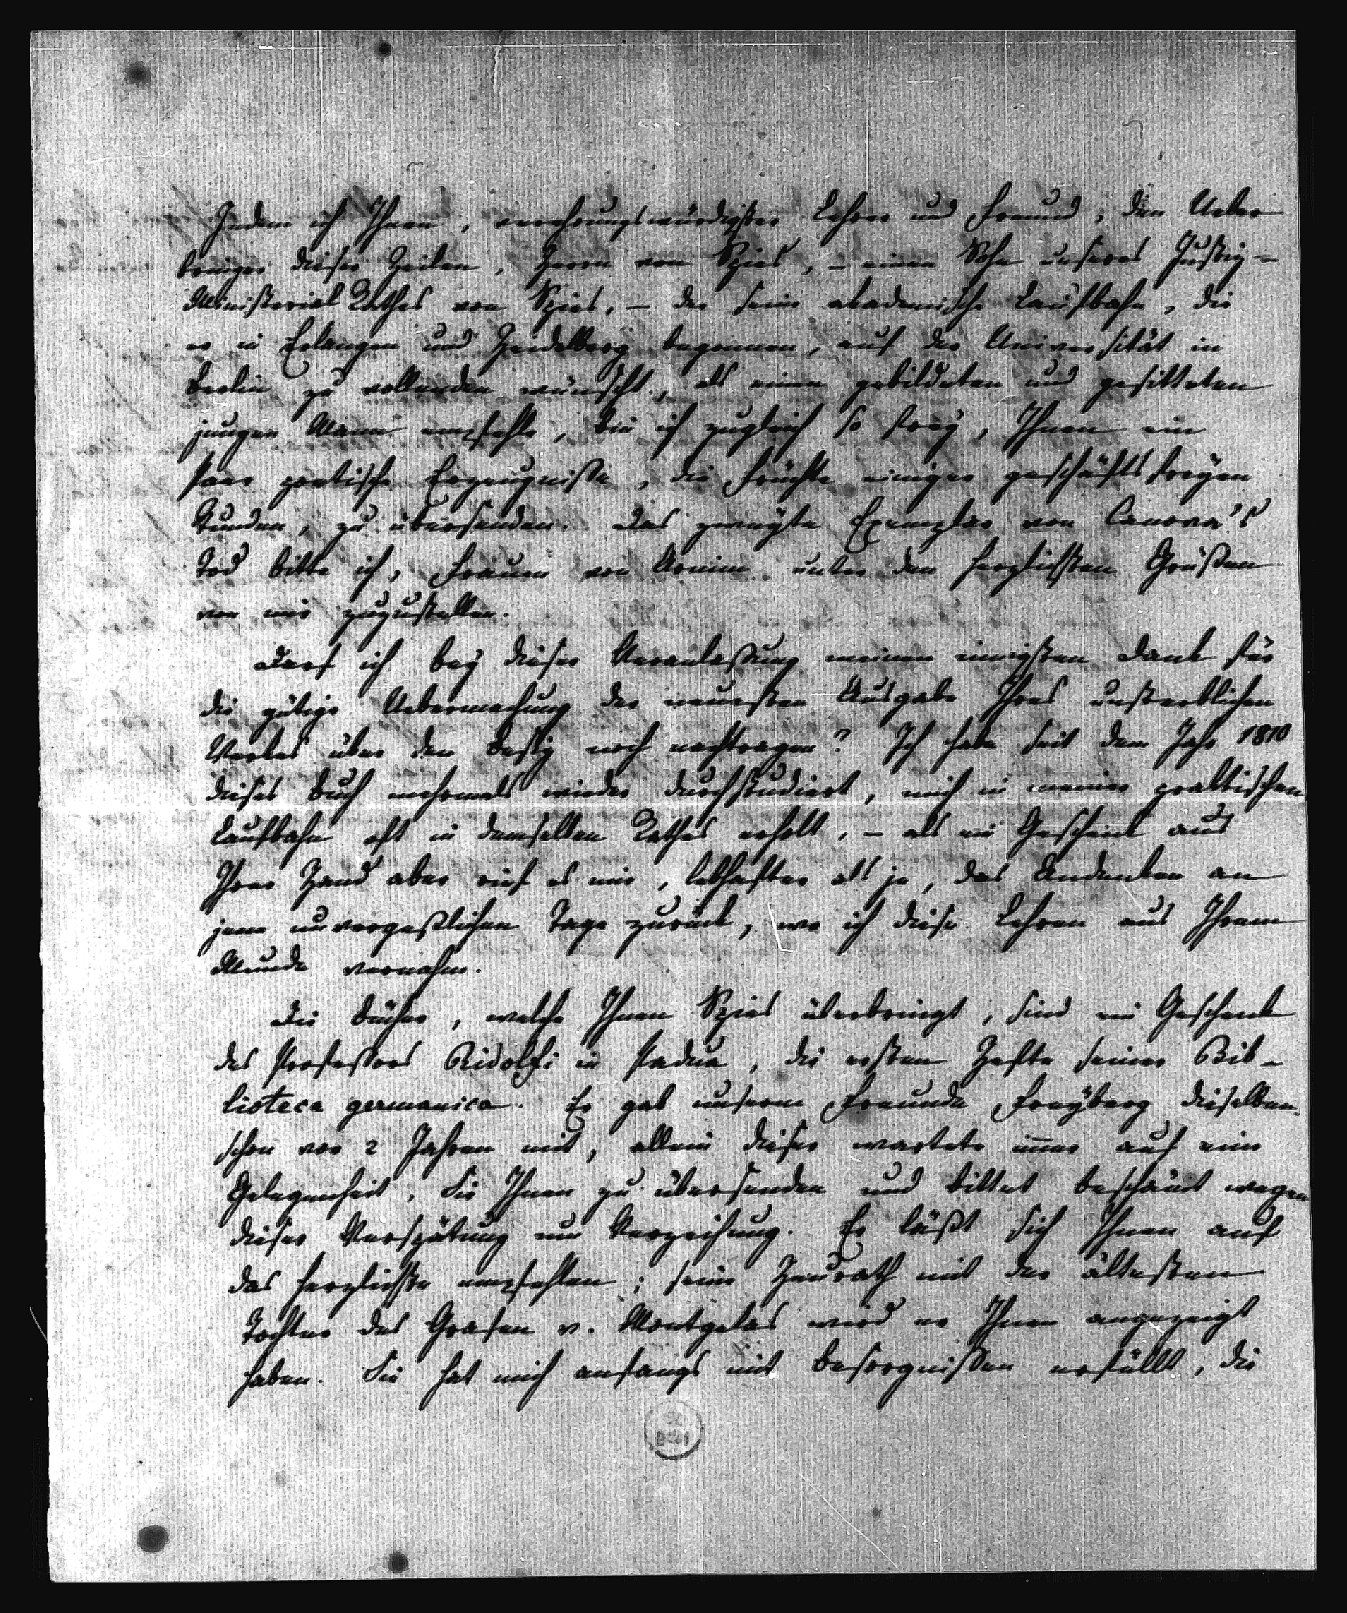 Indem ich Ihnen, verehrungswürdigster Lehrer und Freund, den Ueber
bringer dieser Zeilen, Herrn von Spies, – einen Sohn unseres Justiz-
Ministerial Rathes von Spies, – der seine akademische Laufbahn, die
er in Erlangen und Heidelberg begonnen, auf der Universität in
Berlin zu vollenden wünscht, als einen gebildeten und gesitteten
jungen Mann empfehle, bin ich zugleich so frey, Ihnen ein
Paar poetische Erzeugnisse, die Früchte einiger geschäftsfreyen
Stunden, zu übersenden. Das zweyte Exemplar von Canova's
Tod bitte ich, Frauen von Arnim unter den herzlichsten Grüßen
von mir zuzustellen.
Darf ich bey dieser Veranlaßung meinen innigsten Dank für
die gütige Uebermachung der neuesten Ausgabe Ihres unsterblichen
Werkes über den Besitz noch nachtragen? Ich habe seit dem Jahr 1810
dieses Buch mehrmals wieder durchstudiert, mich in meiner praktischen
Laufbahn oft in demselben Rathes erholt, – als ein Geschenk aus
Ihrer Hand aber rief es mir, lebhafter als je, das Andenken an
jene unvergeßlichen Tage zurück, wo ich diese Lehren aus Ihrem
Munde vernahm.
Die Bücher, welche Ihnen Spies überbringt, sind ein Geschenk
des Professors Ridolfi in Padua, die ersten Hefte seiner Bib-
lioteca germanica. Er gab unserm Freunde Freyberg dieselben
schon vor 2 Jahren mit, allein dieser wartete immer auf eine
Gelegenheit, sie Ihnen zu übersenden und bittet beschämt wegen
dieser Verspätung um Verzeihung. Er läßt sich Ihnen auf
das herzlichste empfehlen; seine Heurath mit der ältesten
Tochter des Grafen v. Montgelas wird er Ihnen angezeigt
haben. Sie hat mich anfangs mit Besorgnissen erfüllt, die